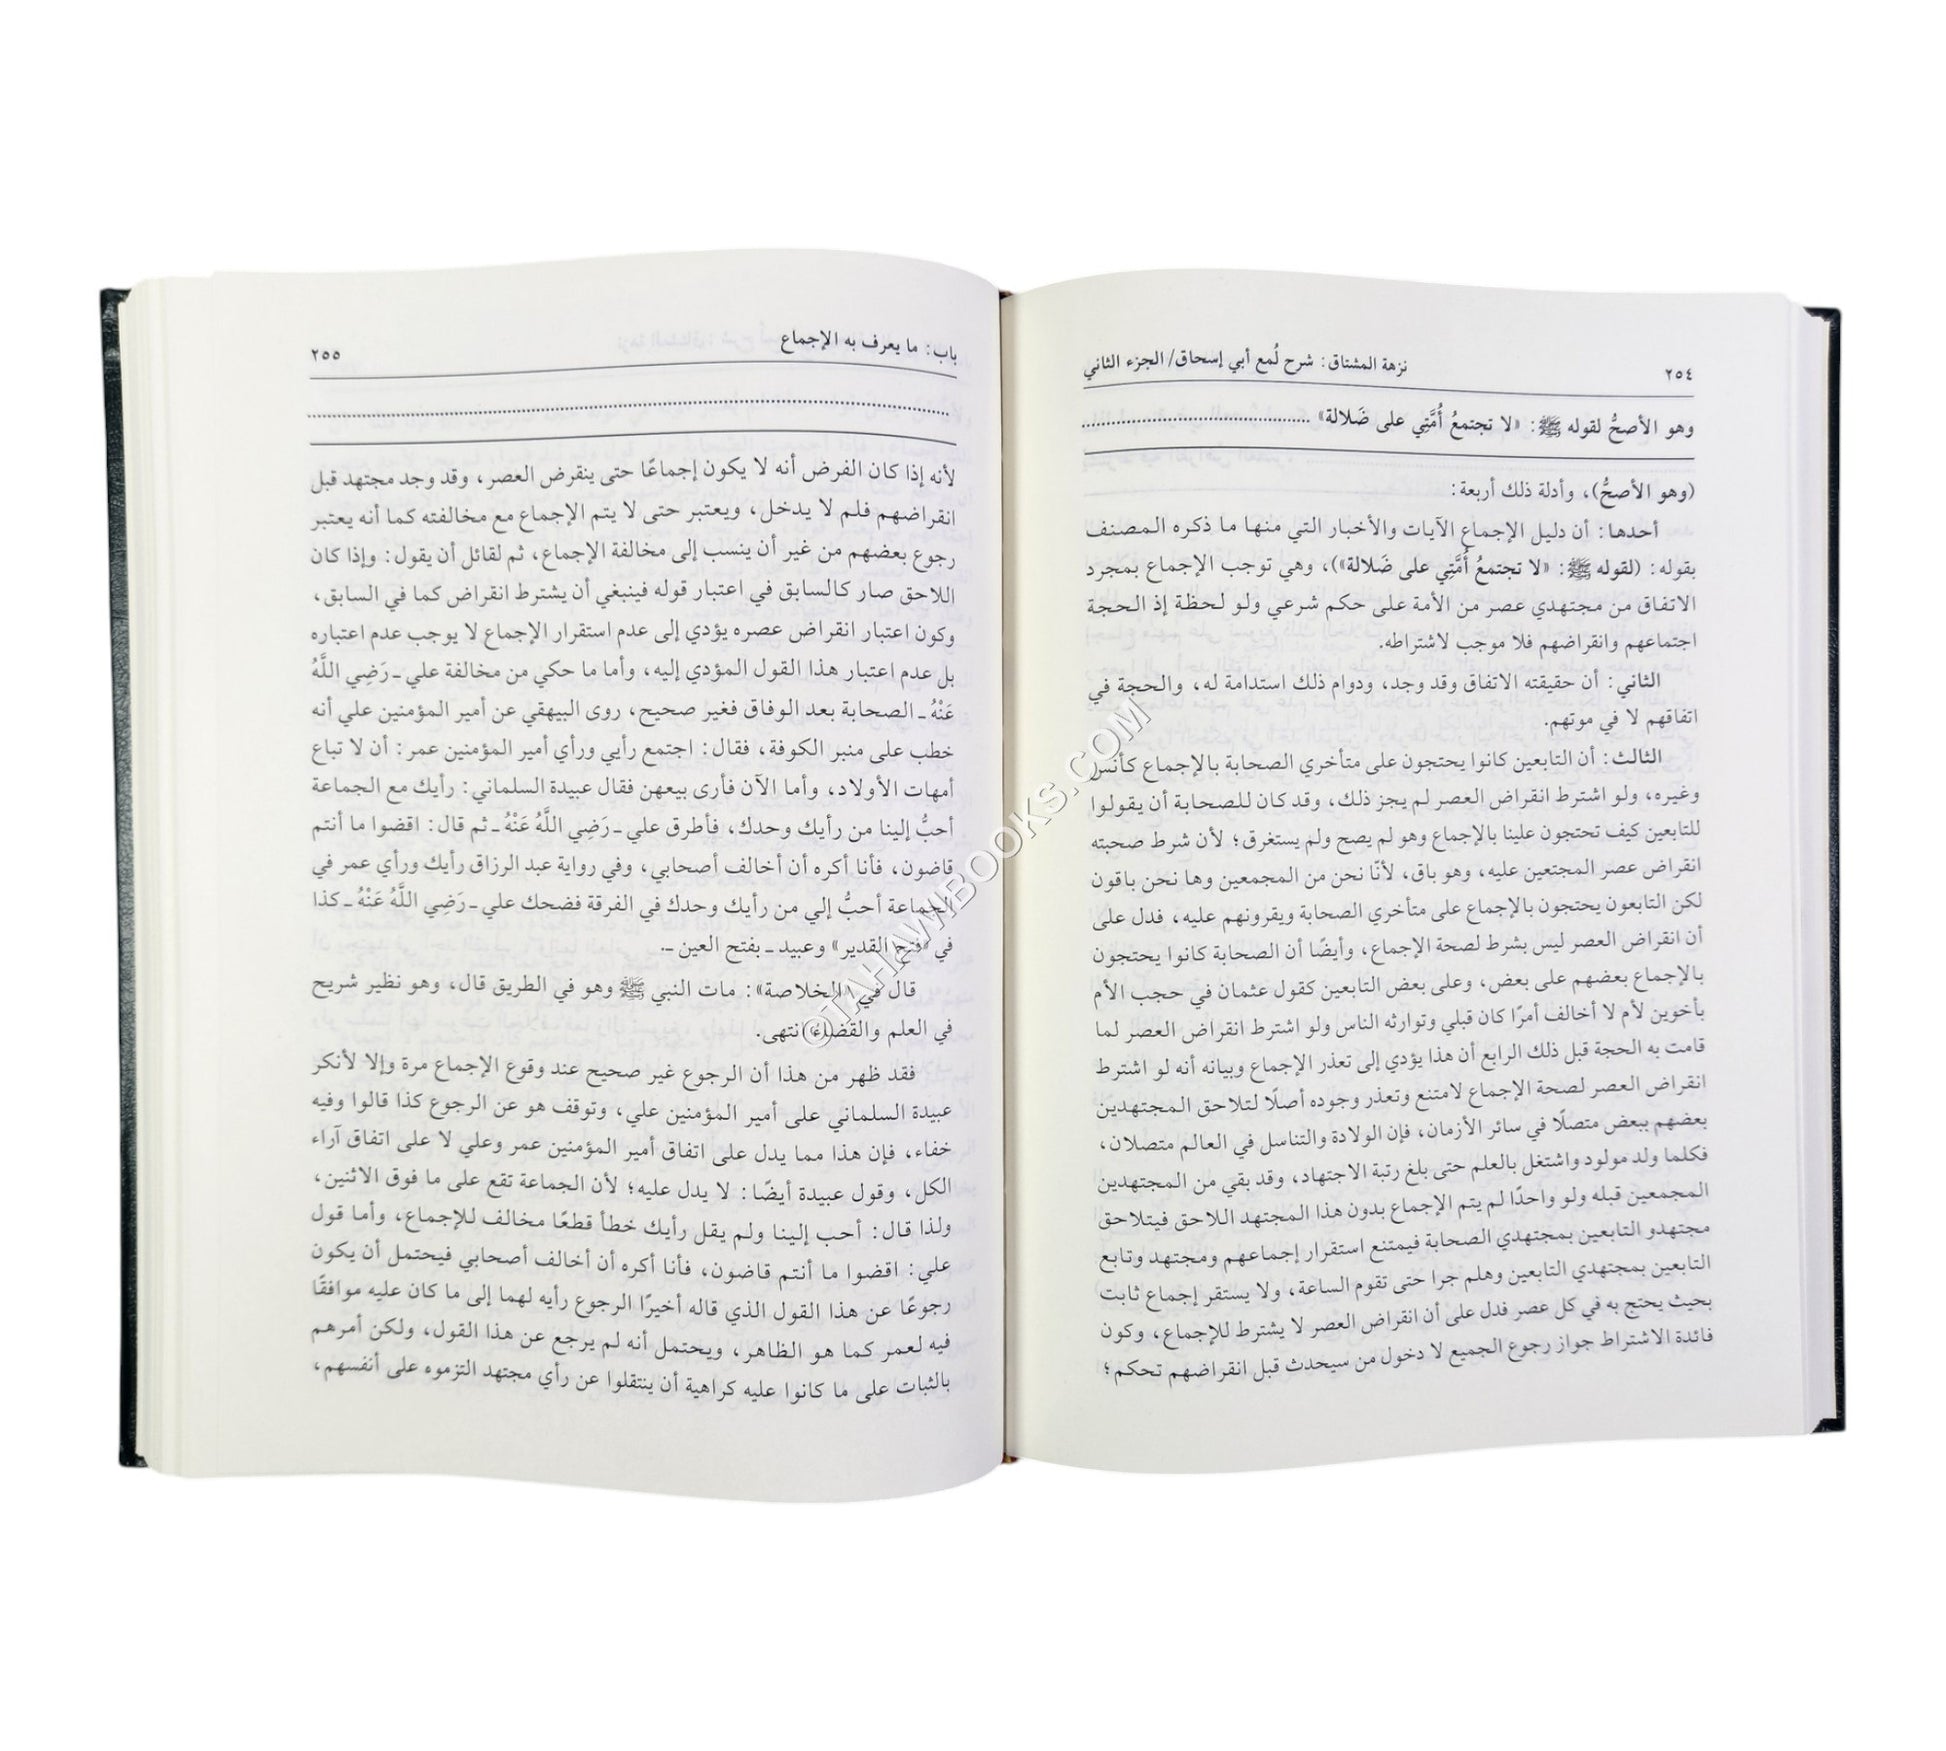 ٢٥٤ نزهة المشتاق: شرح لُمع أبي إسحاق/ الجزء الثاني
وهو الأصحُّ لقوله ﷺ: «لا تجتمعُ أُمَّتِي على ضَلالة»
(وهو الأصحُّ)، وأدلة ذلك أربعة:
أحدها: أن دليل الإجماع الآيات والأخبار التي منها ما ذكره المصنف
بقوله: (لقوله ﷺ: «لا تجتمعُ أُمَّتِي على ضَلالة»)، وهي توجب الإجماع بمجرد
الاتفاق من مجتهدي عصر من الأمة على حكم شرعي ولو لحظة إذ الحجة
اجتماعهم وانقراضهم فلا موجب لاشتراطه.
الثاني: أن حقيقته الاتفاق وقد وجد، ودوام ذلك استدامة له، والحجة في
اتفاقهم لا في موتهم.
الثالث: أن التابعين كانوا يحتجون على متأخري الصحابة بالإجماع كأنس
وغيره، ولو اشترط انقراض العصر لم يجز ذلك، وقد كان للصحابة أن يقولوا
للتابعين كيف تحتجون علينا بالإجماع وهو لم يصح ولم يستغرق؛ لأن شرط صحبته
انقراض عصر المجتعين عليه، وهو باق، لأنّا نحن من المجمعين وها نحن باقون
لكن التابعون يحتجون بالإجماع على متأخري الصحابة ويقرونهم عليه، فدل على
أن انقراض العصر ليس بشرط لصحة الإجماع، وأيضًا أن الصحابة كانوا يحتجون
بالإجماع بعضهم على بعض، وعلى بعض التابعين كقول عثمان في حجب الأم
بأخوين لأم لا أخالف أمرًا كان قبلي وتوارثه الناس ولو اشترط انقراض العصر لما
قامت به الحجة قبل ذلك الرابع أن هذا يؤدي إلى تعذر الإجماع وبيانه أنه لو اشترط
انقراض العصر لصحة الإجماع لامتنع وتعذر وجوده أصلًا لتلاحق المجتهدين
بعضهم ببعض متصلًا في سائر الأزمان، فإن الولادة والتناسل في العالم متصلان،
فكلما ولد مولود واشتغل بالعلم حتى بلغ رتبة الاجتهاد، وقد بقي من المجتهدين
المجمعين قبله ولو واحدًا لم يتم الإجماع بدون هذا المجتهد اللاحق فيتلاحق
مجتهدو التابعين بمجتهدي الصحابة فيمتنع استقرار إجماعهم ومجتهد وتابع
التابعين بمجتهدي التابعين وهلم جرا حتى تقوم الساعة، ولا يستقر إجماع ثابت
بحيث يحتج به في كل عصر فدل على أن انقراض العصر لا يشترط للإجماع، وكون
فائدة الاشتراط جواز رجوع الجميع لا دخول من سيحدث قبل انقراضهم تحكم؛
باب: ما يعرف به الإجماع ٢٥٥
لأنه إذا كان الفرض أنه لا يكون إجماعًا حتى ينقرض العصر، وقد وجد مجتهد قبل
انقراضهم فلم لا يدخل، ويعتبر حتى لا يتم الإجماع مع مخالفته كما أنه يعتبر
رجوع بعضهم من غير أن ينسب إلى مخالفة الإجماع، ثم لقائل أن يقول: وإذا كان
اللاحق صار كالسابق في اعتبار قوله فينبغي أن يشترط انقراض كما في السابق،
وكون اعتبار انقراض عصره يؤدي إلى عدم استقرار الإجماع لا يوجب عدم اعتباره
بل عدم اعتبار هذا القول المؤدي إليه، وأما ما حكي من مخالفة علي ـ رَضِي اللَّهُ
عَنْهُ ـ الصحابة بعد الوفاق فغير صحيح، روى البيهقي عن أمير المؤمنين علي أنه
خطب على منبر الكوفة، فقال: اجتمع رأيي ورأي أمير المؤمنين عمر: أن لا تباع
أمهات الأولاد، وأما الآن فأرى بيعهن فقال عبيدة السلماني: رأيك مع الجماعة
أحبُّ إلينا من رأيك وحدك، فأطرق علي ـ رَضِي اللَّهُ عَنْهُ ـ ثم قال: اقضوا ما أنتم
قاضون، فأنا أكره أن أخالف أصحابي، وفي رواية عبد الرزاق رأيك ورأي عمر في
الجماعة أحبُّ إلي من رأيك وحدك في الفرقة فضحك علي ـ رَضِي اللَّهُ عَنْهُ ـ كذا
في «فتح القدير» وعبيد ـ بفتح العين ـ.
قال في «الخلاصة»: مات النبي ﷺ وهو في الطريق قال، وهو نظير شريح
في العلم والقضاء انتهى.
فقد ظهر من هذا أن الرجوع غير صحيح عند وقوع الإجماع مرة وإلا لأنكر
عبيدة السلماني على أمير المؤمنين علي، وتوقف هو عن الرجوع كذا قالوا وفيه
خفاء، فإن هذا مما يدل على اتفاق أمير المؤمنين عمر وعلي لا على اتفاق آراء
الكل، وقول عبيدة أيضًا: لا يدل عليه؛ لأن الجماعة تقع على ما فوق الاثنين،
ولذا قال: أحب إلينا ولم يقل رأيك خطأ قطعًا مخالف للإجماع، وأما قول
علي: اقضوا ما أنتم قاضون، فأنا أكره أن أخالف أصحابي فيحتمل أن يكون
رجوعًا عن هذا القول الذي قاله أخيرًا الرجوع رأيه لهما إلى ما كان عليه موافقًا
فيه لعمر كما هو الظاهر، ويحتمل أنه لم يرجع عن هذا القول، ولكن أمرهم
بالثبات على ما كانوا عليه كراهية أن ينتقلوا عن رأي مجتهد التزموه على أنفسهم،
©TAHAWIBOOKS.COM